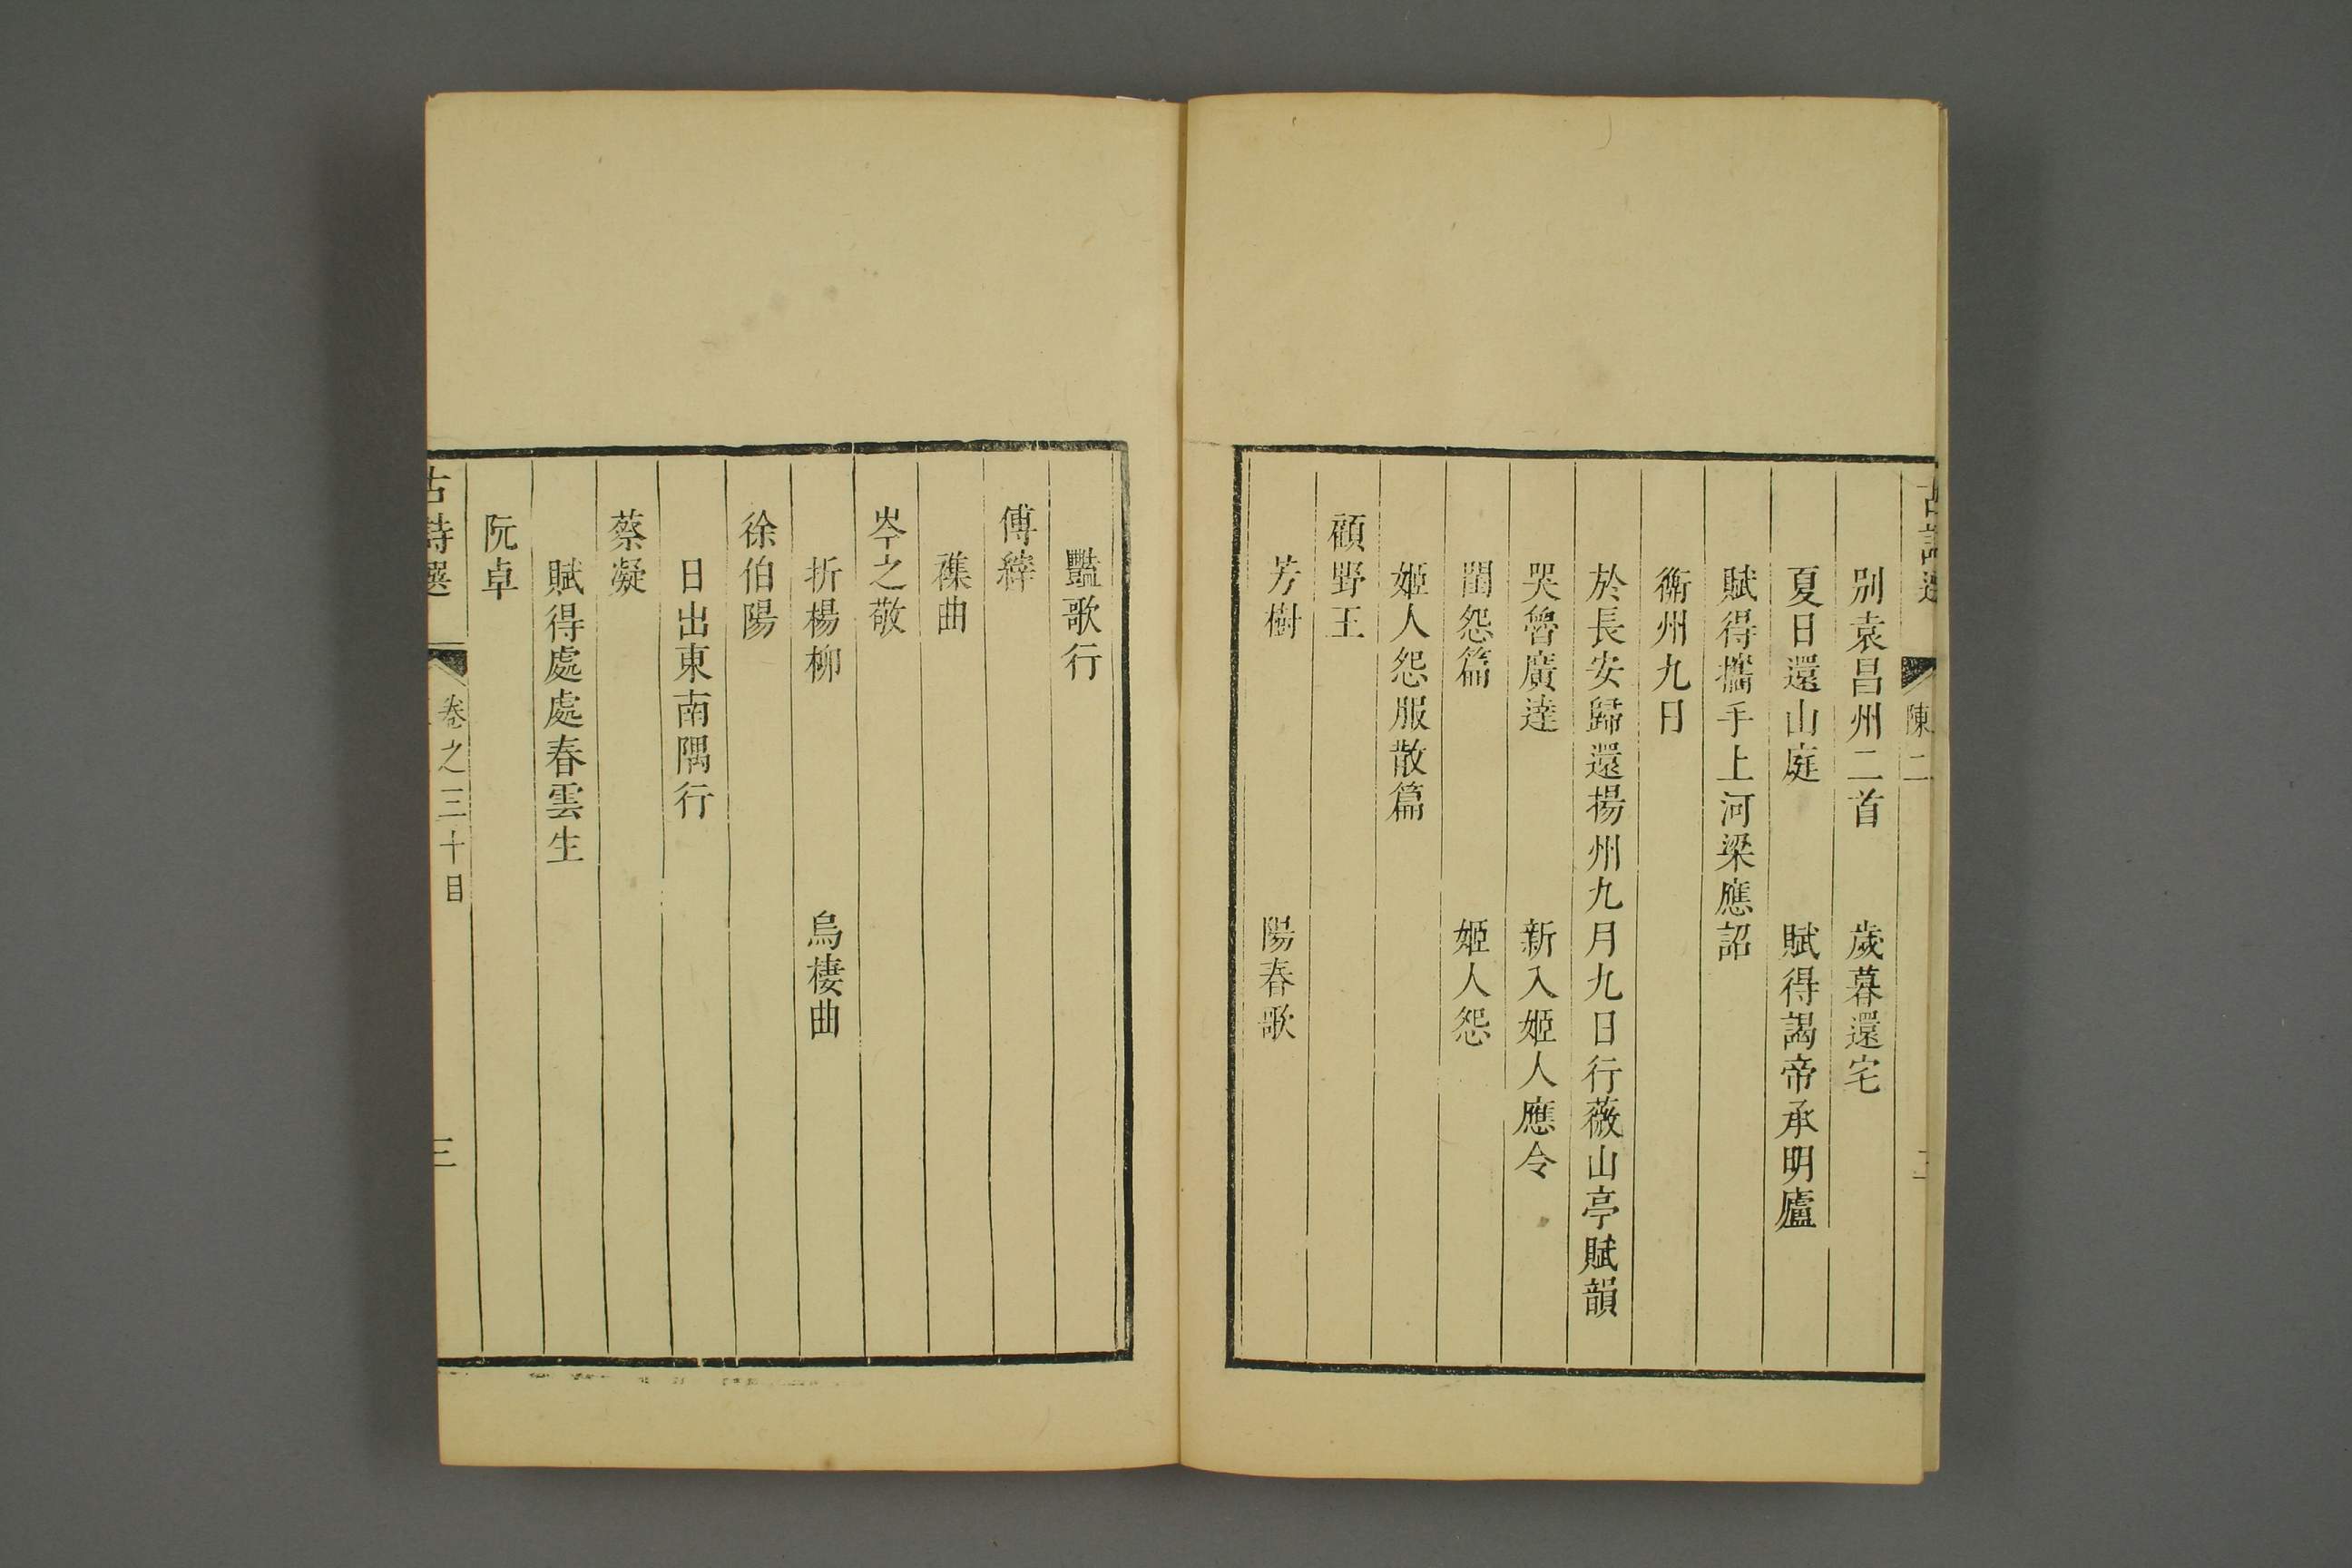 古詩選 陳二 二
別袁昌州二首 歲暮還宅
夏日還山庭 賦得謁帝承明廬
賦得攜手上河梁應詔
衡州九日
於長安歸還揚州九月九日行薇山亭賦韻
哭魯廣達 新入姬人應令
閨怨篇 姬人怨
姬人怨服散篇
顧野王
芳樹 陽春歌
豔歌行
傅縡
雜曲
岑之敬
折楊柳 烏棲曲
徐伯陽
日出東南隅行
蔡凝
賦得處處春雲生
阮卓
古詩選 卷之三十目 三